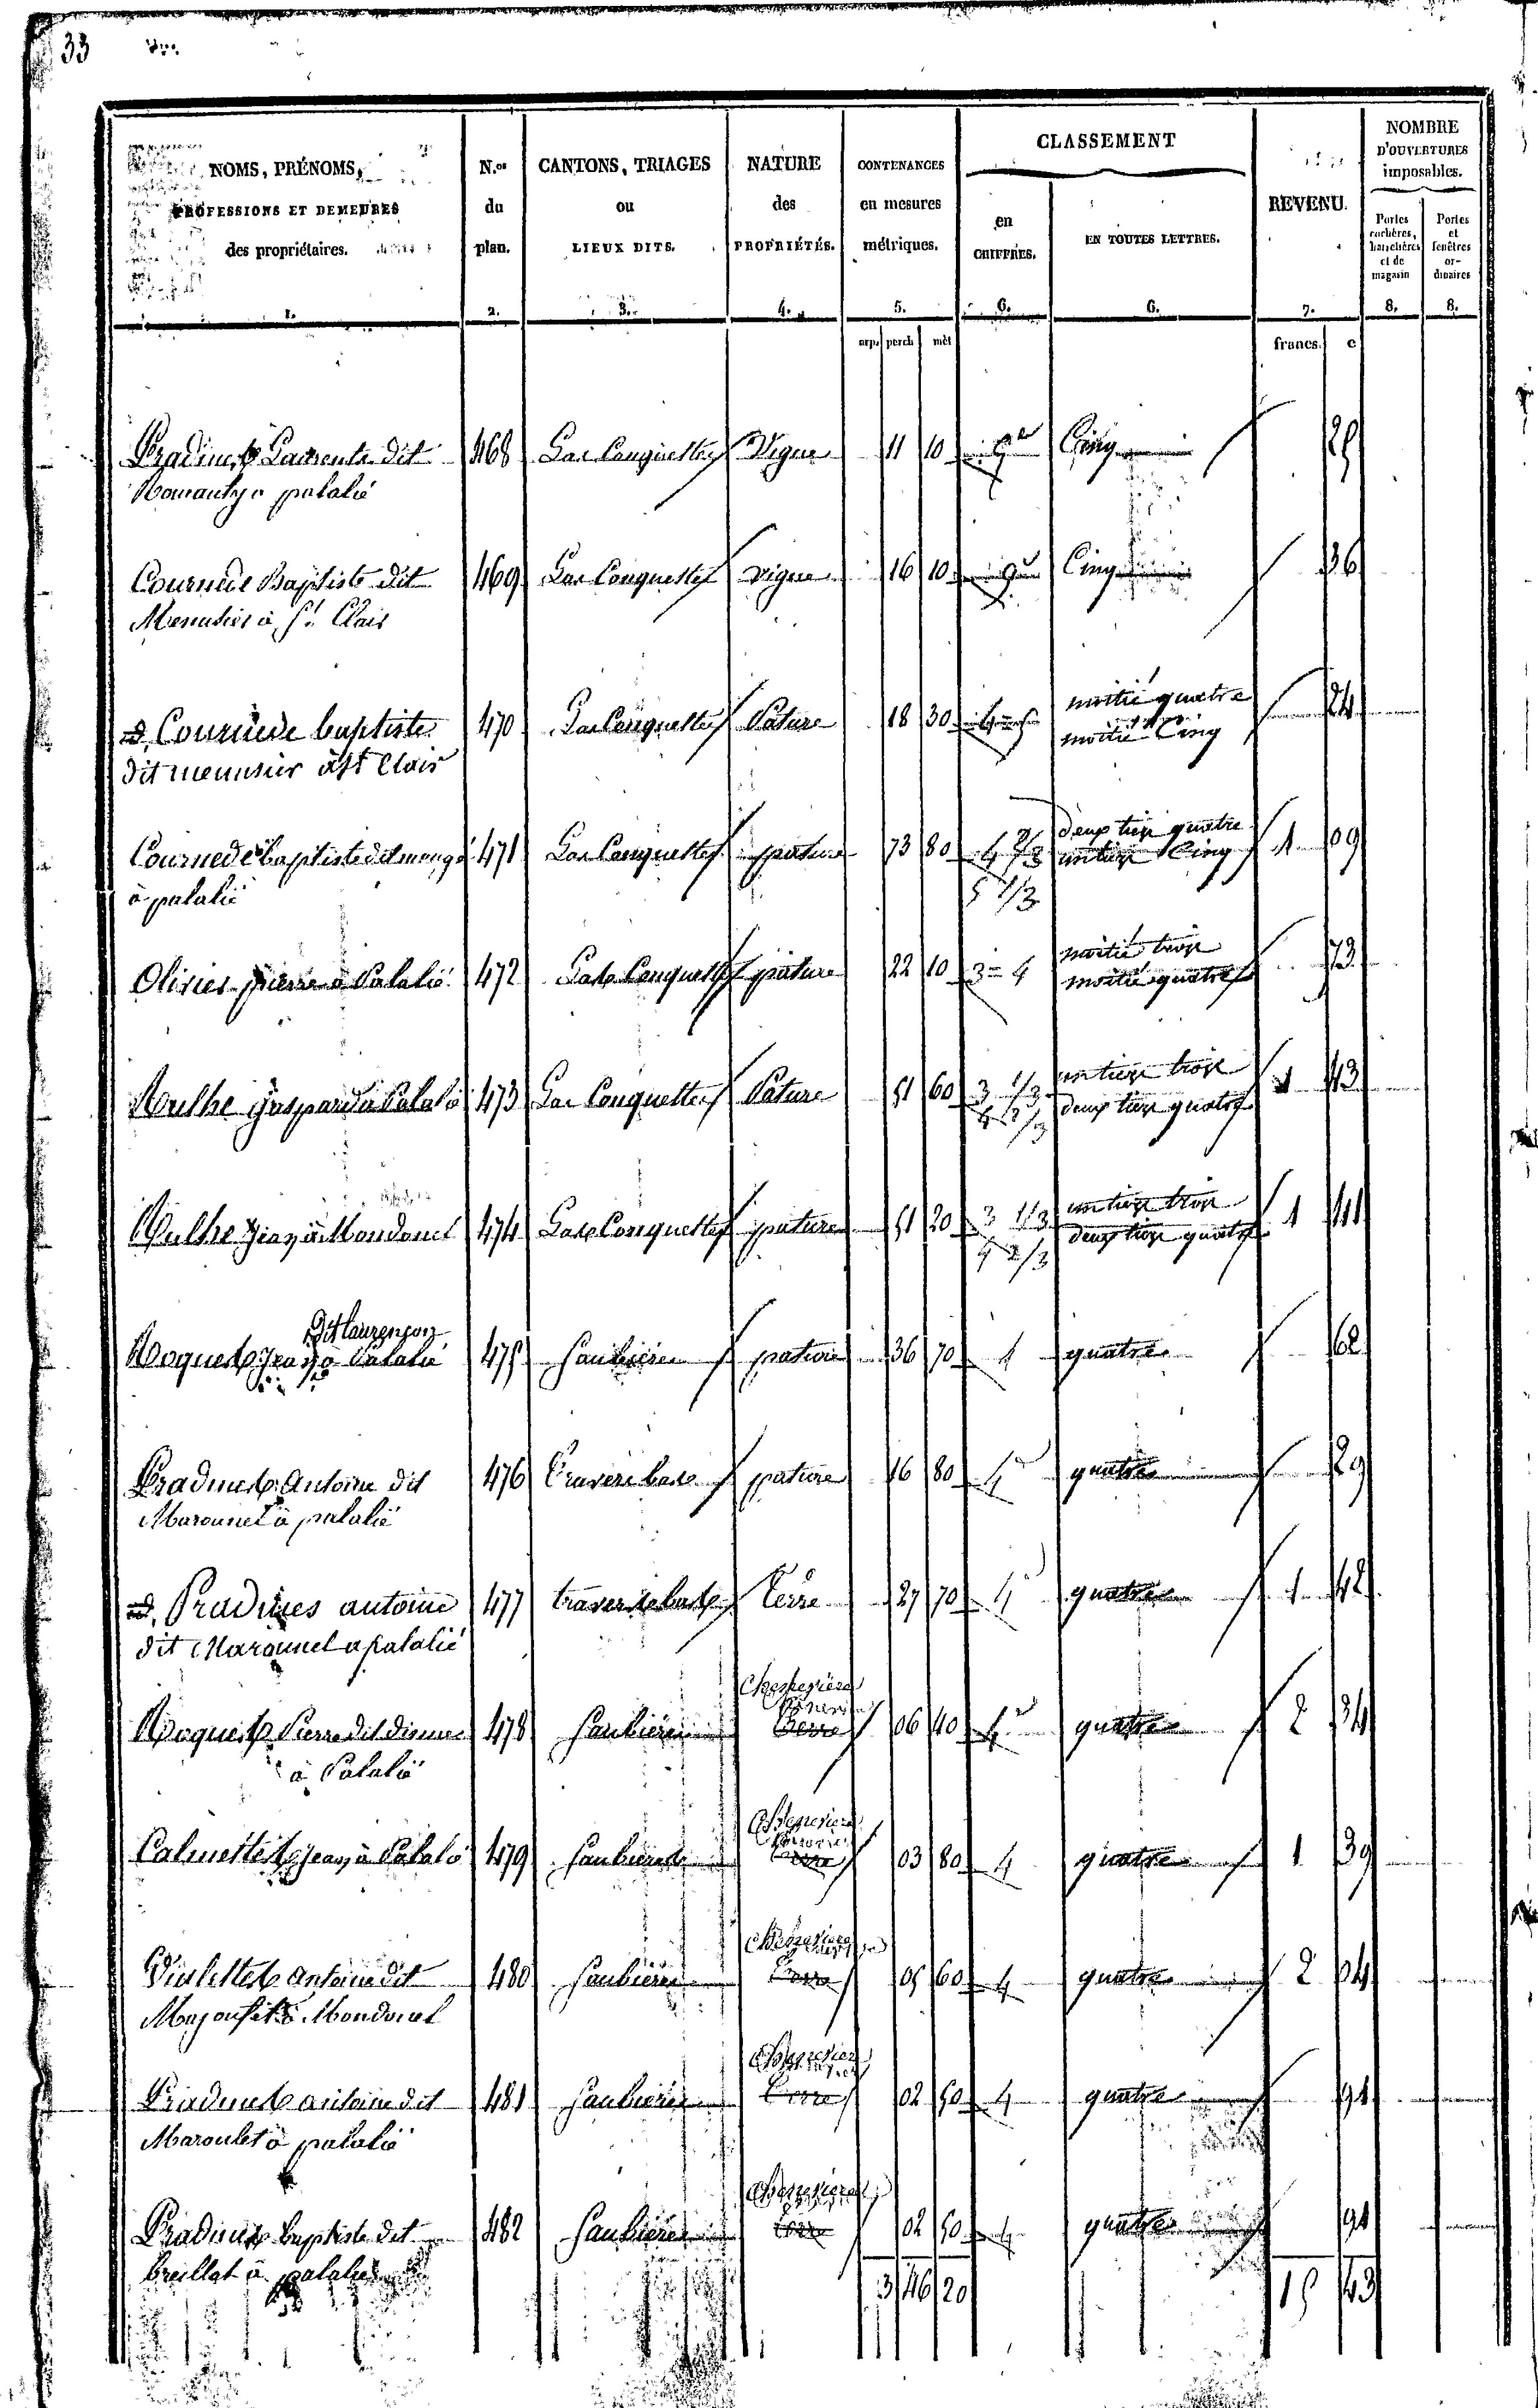 33
NOMS, PRÉNOMS,
PROFESSIONS ET DEMEURES
des propriétaires.
1.
N.os
du
plan.
2.
CANTONS, TRIAGES
ou
LIEUX DITS.
3.
NATURE
des
PROPRIÉTÉS.
4.
CONTENANCES
en mesures
métriques.
5.
CLASSEMENT
en
CHIFFRES.
6.
EN TOUTES LETTRES.
6.
REVENU.
7.
NOMBRE
D'OUVERTURES
imposables.
Portes
cochères,
et de
magasin
8.
Portes
et
fenêtres
or-
dinaires
8.
arp. perch mèt francs. c
Pradines Laurens dit 468 Las Conquettes Vigne 11 10 5 Cinq 25
à palalié
Cournède Baptiste dit 469 Las Conquettes vigne 16 10 5 Cinq 36
Menusier à St. Clair
id. Cournède baptiste 470 Las Conquettes Pature 18 30 4 5 moitié quatre moitié Cinq 24
dit menusier à St Clair
Cournede baptiste dit 471 Las Conquettes pature 73 80 4 2/3 deux tiers quatre un tiers Cinq 1 09
à palalié 5 1/3
Olivier pierre à Palalié 472 Las Conquettes pature 22 10 3 = 4 moitié trois moitié quatre 73
gaspard à Palalié 473 Las Conquettes Pature 51 60 3 1/3 un tiers trois 1 43
4 2/3 deux tiers quatre
Jean à Mondounet 474 Las Conquettes pature 51 20 3 1/3 un tiers trois 1 41
4 2/3 deux tiers quatre
dit Laurençon
Roques Jean à Palalié 475 Saubieres pature 36 70 4 quatre 62
Pradines Antoine dit 476 Traverse basse pature 16 80 4 quatre 29
Marounel à palalié
id. Pradines antoine 477 traverse basse Terre 27 70 4 quatre 1 42
dit Marounel a palalié
Cheneviere
Roques Pierre dit 478 Saubieres Terre 06 40 4 quatre 2 34
à Palalié
Cheneviere
Calmettes Jean à Palalié 479 Saubieres Terre 03 80 4 quatre 1 39
Cheneviere
Violettes Antoine dit 480 Saubieres Terre 05 60 4 quatre 2 04
à Mondounet
Cheneviere
Pradines antoine dit 481 Saubieres Terre 02 50 4 quatre 91
Maroulet à palalié
Cheneviere
Pradines baptiste dit 482 Saubieres Terre 02 50 4 quatre 91
breillat à palalié
3 46 20 15 43